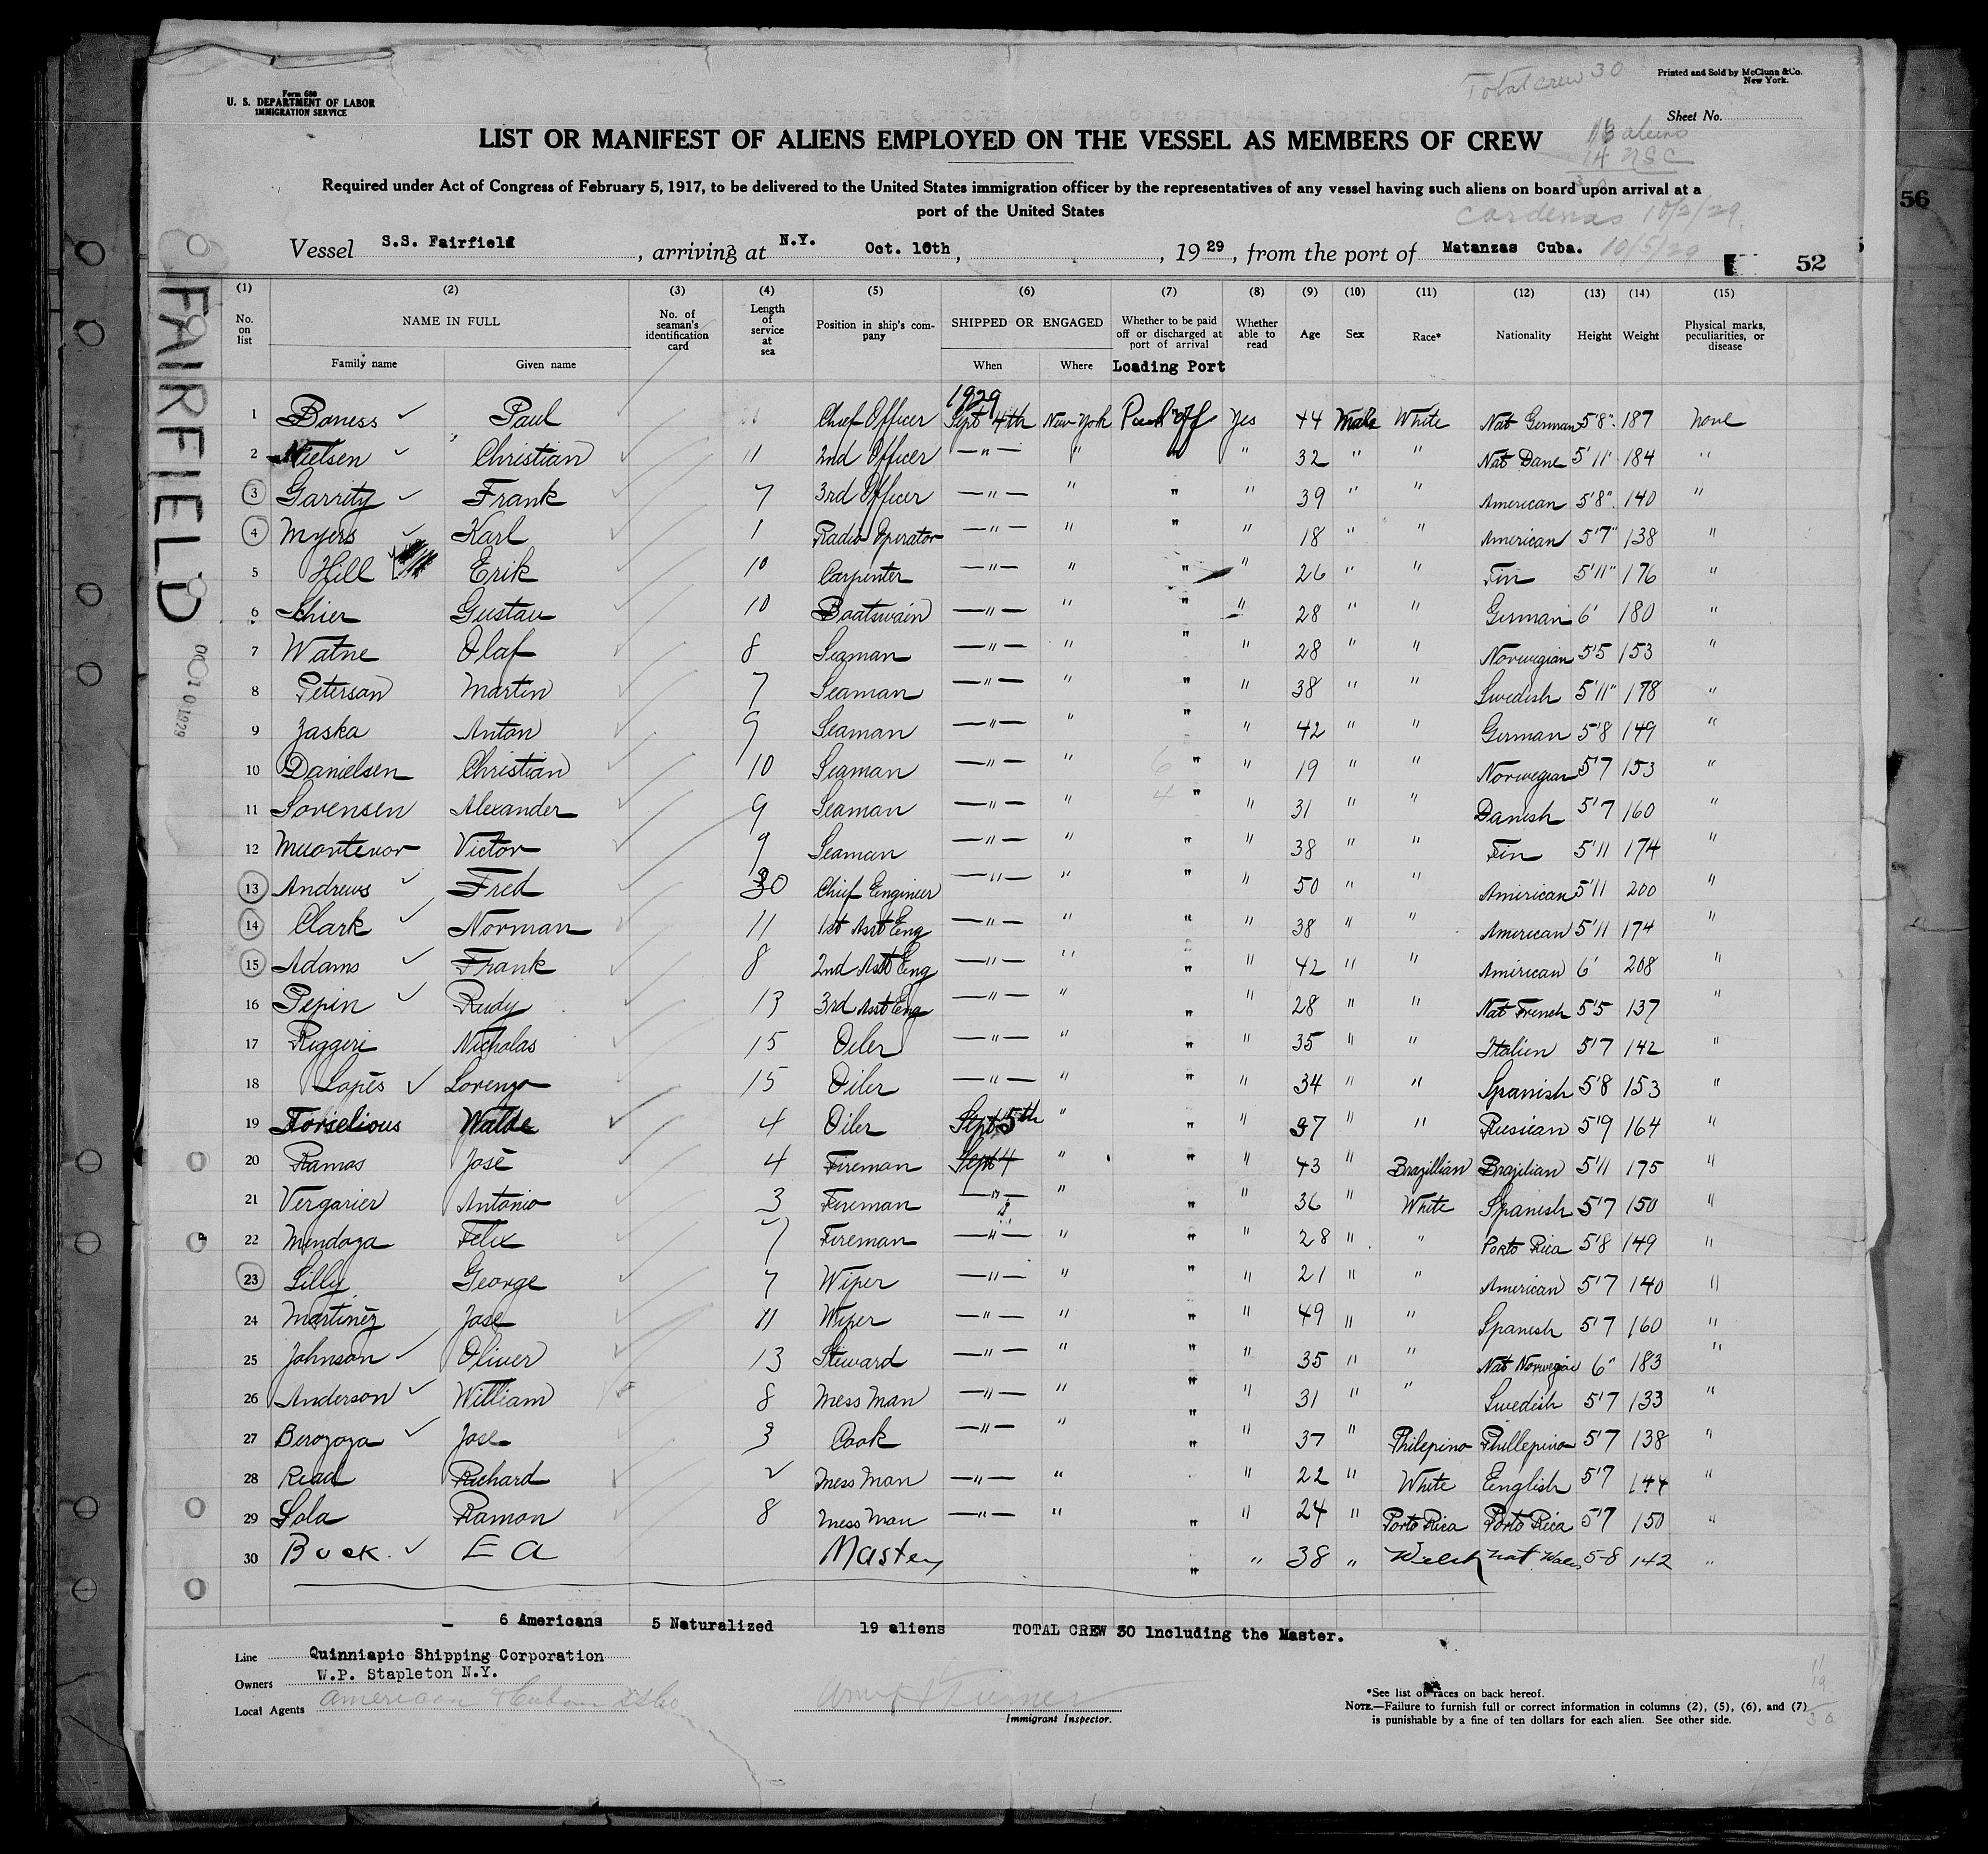 Total crew 30
Printed and Sold by McClunn & Co.
New York.
Form 680
U. S. DEPARTMENT OF LABOR
IMMIGRATION SERVICE
Sheet No.
LIST OR MANIFEST OF ALIENS EMPLOYED ON THE VESSEL AS MEMBERS OF CREW
aliens
14 USC
Required under Act of Congress of February 5, 1917, to be delivered to the United States immigration officer by the representatives of any vessel having such aliens on board upon arrival at a
port of the United States
56
Cardenas 10/2/29.
Vessel S.S. Fairfield, arriving at N.Y. Oct. 10th, 1929, from the port of Matanzas Cuba. 10/5/29
52
FAIRFIELD
OCT 10 1929
(1) (2) (3) (4) (5) (6) (7) (8) (9) (10) (11) (12) (13) (14) (15)
No. on list NAME IN FULL Family name Given name No. of seaman's identification card Length of service at sea Position in ship's company SHIPPED OR ENGAGED When Where Whether to be paid off or discharged at port of arrival Loading Port Whether able to read Age Sex Race* Nationality Height Weight Physical marks, peculiarities, or disease
1929
1 Boness Paul Chief Officer Sept 4th New York Paid off Yes 44 Male White Nat German 5'8" 187 None
2 Nielsen Christian 11 2nd Officer " " " " 32 " " Nat Dane 5'11 184 "
3 Garrity Frank 7 3rd Officer " " " " 39 " " American 5'8" 140 "
4 Myers Karl 1 Radio Operator " " " " 18 " " American 5'7" 138 "
5 Hill Erik 10 Carpenter " " " " 26 " " Fin 5'11" 176 "
6 Schier Gustav 10 Boatswain " " " " 28 " " German 6' 180 "
7 Watne Olaf 8 Seaman " " " " 28 " " Norwegian 5'5 153 "
8 Peterson Martin 7 Seaman " " " " 38 " " Swedish 5'11" 178 "
9 Zaska Anton 9 Seaman " " " " 42 " " German 5'8 149 "
10 Danielsen Christian 10 Seaman " " " " 19 " " Norwegian 5'7 153 "
11 Sorensen Alexander 9 Seaman " " " " 31 " " Danish 5'7 160 "
12 Victor 9 Seaman " " " " 38 " " Fin 5'11 174 "
13 Andrews Fred 30 Chief Engineer " " " " 50 " " American 5'11 200 "
14 Clark Norman 11 1st Asst Eng " " " " 38 " " American 5'11 174 "
15 Adams Frank 8 2nd Asst Eng " " " " 42 " " American 6' 208 "
16 Pepin Rudy 13 3rd Asst Eng " " " " 28 " " Nat French 5'5 137 "
17 Riggeri Nicholas 15 Oiler " " " " 35 " " Italien 5'7 142 "
18 Lopes Lorenzo 15 Oiler " " " " 34 " " Spanish 5'8 153 "
19 Forselious Walde 4 Oiler Sept 5th " " " 37 " " Rusican 5'9 164 "
20 Ramos José 4 Fireman Sept 4 " " " 43 " Brazillian Brazilian 5'11 175 "
21 Vergarier Antonio 3 Fireman " " " " 36 " White Spanish 5'7 150 "
22 Mendoza Felix 7 Fireman " " " " 28 " " Porto Rica 5'8 149 "
23 Lilly George 7 Wiper " " " " 21 " " American 5'7 140 "
24 Martinez Jose 11 Wiper " " " " 49 " " Spanish 5'7 160 "
25 Johnson Oliver 13 Steward " " " " 35 " " Nat Norwegian 6" 183 "
26 Anderson William 8 Mess Man " " " " 31 " " Swedish 5'7 133 "
27 Berozoza Jose 3 Cook " " " " 37 " Philepino Phillepino 5'7 138 "
28 Read Richard 2 Mess Man " " " 22 " White English 5'7 144 "
29 Sola Ramon 8 Mess Man " " " " 24 " Porto Rica Porto Rica 5'7 150 "
30 Buck. E A Master " " 38 " Welsh nat Wales 5-8 142 "
6 Americans 5 Naturalized 19 aliens TOTAL CREW 30 Including the Master.
Line Quinniapic Shipping Corporation
Owners W.P. Stapleton N.Y.
Local Agents American & Cuban SS Co
Immigrant Inspector.
*See list of races on back hereof.
NOTE.—Failure to furnish full or correct information in columns (2), (5), (6), and (7)
is punishable by a fine of ten dollars for each alien. See other side.
11
19
30